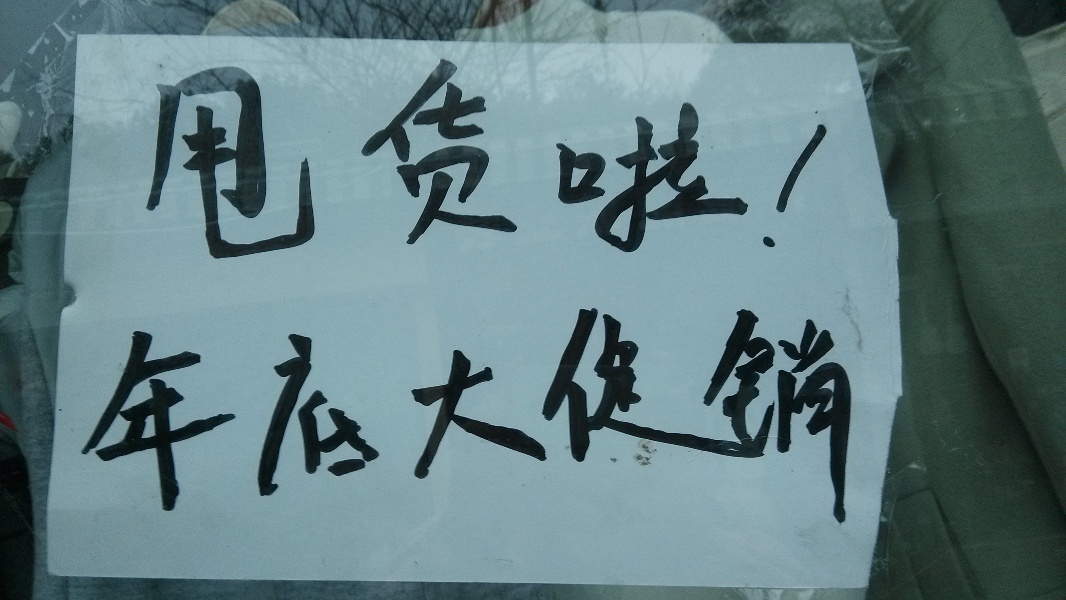 甩货啦！
年底大促销